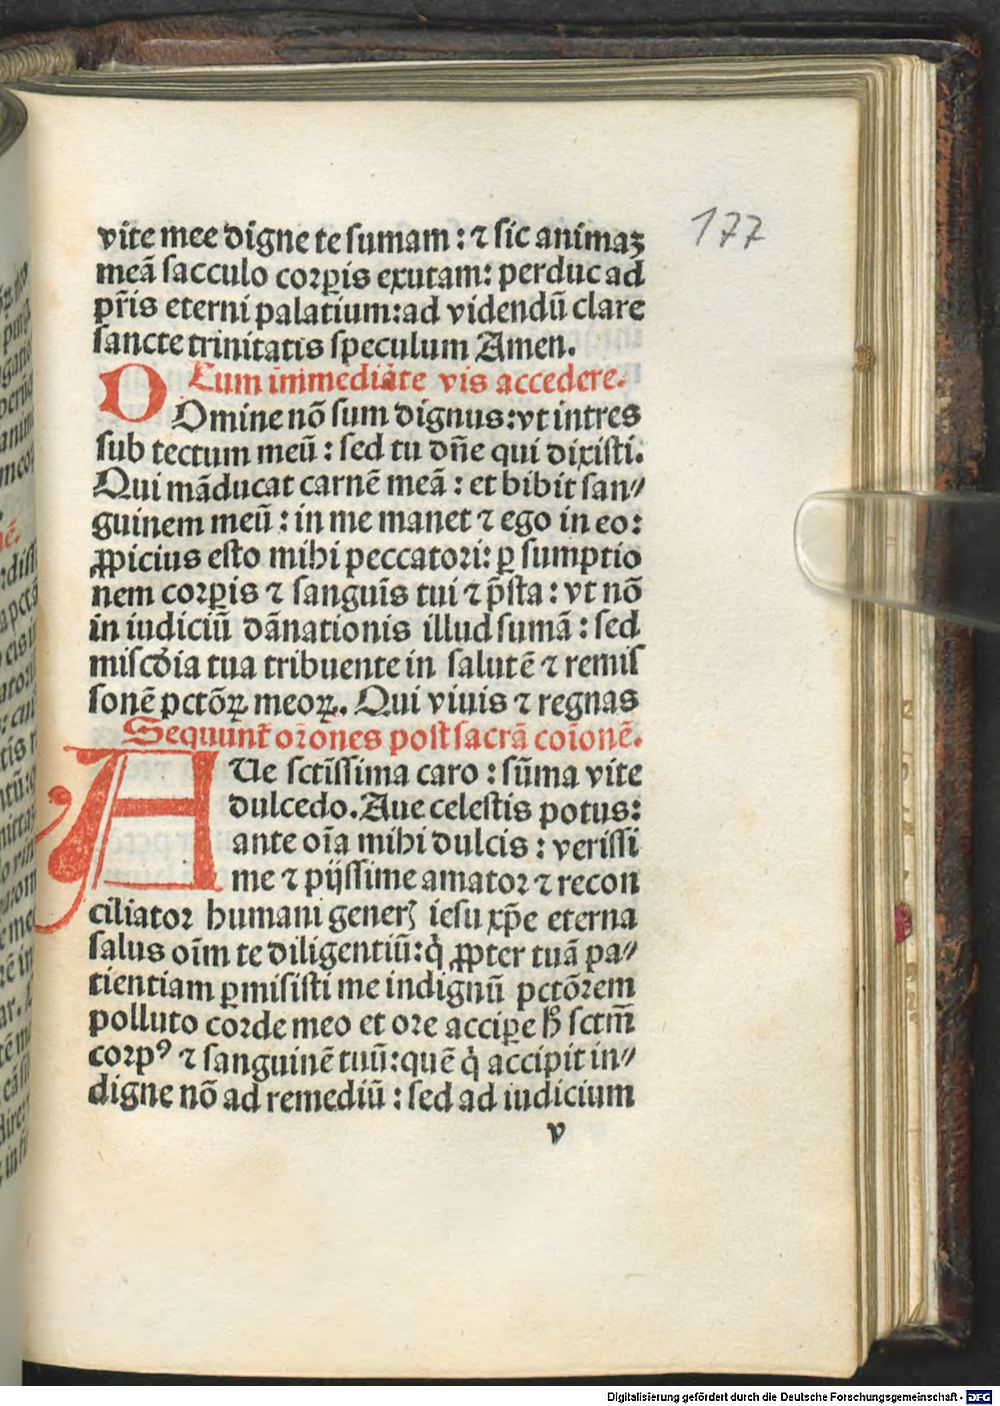 177
vite mee digne te sumam: ⁊ sic animaꝫ
meā sacculo corꝑis exutam: perduc ad
pr̄is eterni palatium: ad videndū clare
sancte trinitatis speculum Amen.
Cum immediate vis accedere.
DOmine nō sum dignus: vt intres
sub tectum meū: sed tu dn̄e qui dixisti.
Qui māducat carnē meā: et bibit san⸗
guinem meū: in me manet ⁊ ego in eo:
ꝓpicius esto mihi peccatori: ꝑ sumptio
nem corꝑis ⁊ sanguīs tui ⁊ p̄sta: vt nō
in iudiciū dānationis illud sumā: sed
misc̄dia tua tribuente in salutē ⁊ remis
sonē pctōꝝ meoꝝ. Qui viuis ⁊ regnas
Sequunt̄ or̄ones post sacrā coīonē.
AUe sctīssima caro: sūma vite
dulcedo. Aue celestis potus:
ante oīa mihi dulcis: verissi
me ⁊ pijssime amator ⁊ recon
ciliator humani generꝭ iesu xp̄e eterna
salus oīm te diligentiū: q̇ ꝓpter tuā pa⸗
tientiam ꝑmisisti me indignū pctōrem
polluto corde meo et ore acciꝑe h̄ sctm̄
corpꝰ ⁊ sanguinē tuū: quē q̇ accipit in⸗
digne nō ad remediū: sed ad iudicium
v
Digitalisierung gefördert durch die Deutsche Forschungsgemeinschaft - DFG